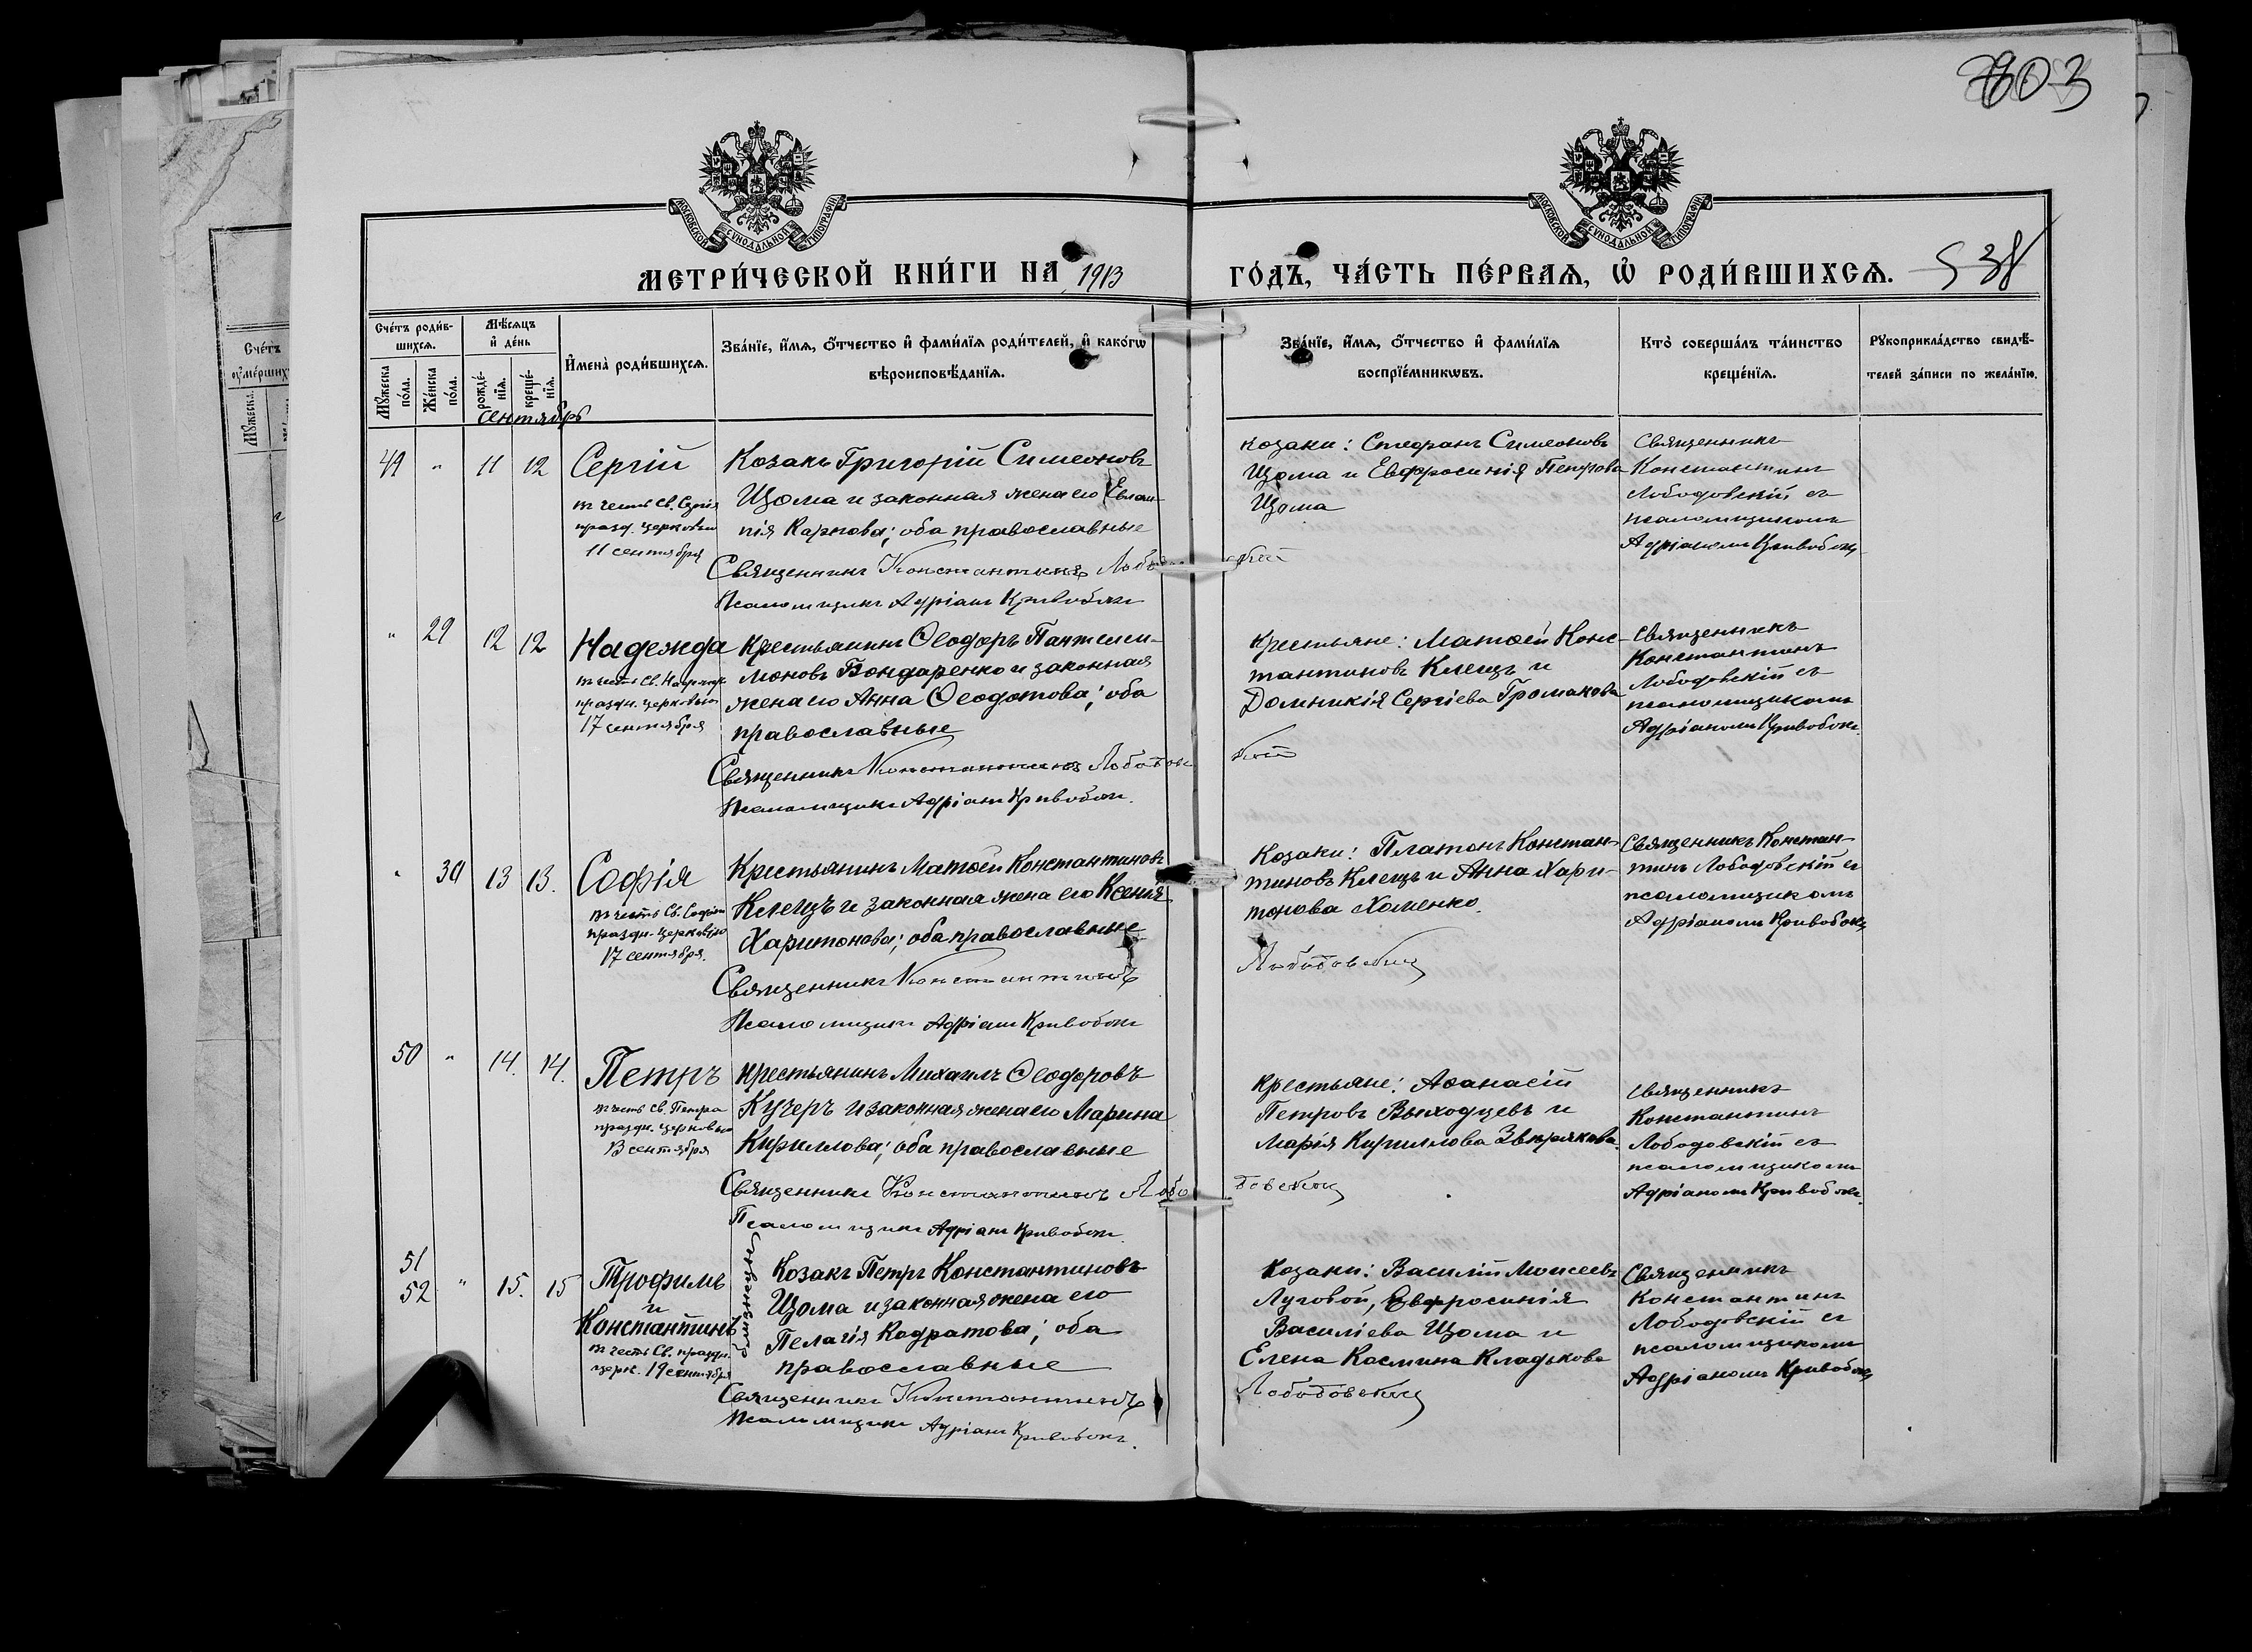 803
МОСКОВСКОЙ СУНОДАЛЬНОЙ ТИПОГРАФІИ
МОСКОВСКОЙ СУНОДАЛЬНОЙ ТИПОГРАФІИ
МЕТРИ́ЧЕСКОЙ КНИ́ГИ НА 1913
ГО́ДЪ, ЧА́СТЬ ПЕ́РВАѦ, Ѽ РОДИ́ВШИХСѦ.
538
Сче́тъ роди́в-
шихсѧ.
Мꙋ́жеска по́ла.
Же́нска по́ла.
Мѣ́сѧцъ
и҆ де́нь
рожде́-
нїѧ.
креще́-
нїѧ.
И҆мена̀ роди́вшихсѧ.
Зва́нїе, и҆́мѧ, ѻ҆́тчество и҆ фами́лїѧ роди́телей, и҆ како́гѡ
вѣроисповѣ́данїѧ.
Зва́нїе, и҆́мѧ, ѻ҆́тчество и҆ фами́лїѧ
воспрїе́мникѡвъ.
Кто̀ соверша́лъ та́инство
креще́нїѧ.
Рꙋкоприкла́дство свидѣ́-
телей за́писи по жела́нїю.
Сче́тъ
ᲂу҆ме́рших
Мꙋ́жеска
сентябрь
49 " 11 12 Сергій
въ честь Св. Сергія
празд. церковью
11 сентября
Козакъ Григорій Симеоновъ
Щома и законная жена его Евлам-
пія Карпова; оба православные
Священникъ Константинъ Лобо
Псаломщикъ Адріанъ Кривобокъ
козаки: Стефанъ Симеоновъ
Щома и Евфросинія Петрова
Щома
Священникъ
Константинъ
Лободовскій съ
псаломщикомъ
Адріаномъ Кривобок
" 29 12 12 Надежда
въ честь Св. Надежды
праздн. церковью
17 сентября
Крестьянинъ Ѳеодоръ Пантелеи-
моновъ Бондаренко и законная
жена его Анна Ѳеодотова; оба
православные
Священникъ Константинъ Лободовс
кій
Псаломщикъ Адріанъ Кривобокъ.
Крестьяне: Матѳей Конс-
тантиновъ Клещъ и
Домникія Сергіева Громакова
Священникъ
Константинъ
Лободовскій съ
псаломщикомъ
Адріаномъ Кривобокъ.
" 30 13 13. Софія
въ честь Св. Софіи
праздн. церковью
17 сентября.
Крестьянинъ Матѳей Константиновъ
Клещъ и законная жена его Ксенія
Харитонова; оба православные
Священникъ Константинъ
Лободовскій
Псаломщикъ Адріанъ Кривобокъ
Козаки: Платонъ Констан-
тиновъ Клещъ и Анна Хари-
тонова Хоменко.
Священникъ Констан-
тинъ Лободовскій съ
псаломщикомъ
Адріаномъ Кривобок
50 " 14. 14. Петръ
въ честь Св. Петра
праздн. церковью
13 сентября
Крестьянинъ Михаилъ Ѳеодоровъ
Кучеръ и законная жена его Марина
Кириллова; оба православные
Священникъ Константинъ Лобо
довскій
Псаломщикъ Адріанъ Кривобокъ
Крестьяне: Аѳанасій
Петровъ Выходцевъ и
Марія Кириллова Звирякова.
Священникъ
Константинъ
Лободовскій съ
псаломщикомъ
Адріаномъ Кривобокъ.
51
52 " 15. 15 Трофимъ
и
Константинъ
въ честь Св. праздн.
церк. 19 сентября
близнецы
Козакъ Петръ Константиновъ
Щома и законная жена его
Пелагія Кодратова; оба
православные
Священникъ Константинъ
Лободовскій
Псаломщикъ Адріанъ Кривобокъ.
Козаки: Василій Моисеевъ
Луговой, Евфросинія
Василіева Щома и
Елена Космина Кладькова
Священникъ
Константинъ
Лободовскій съ
псаломщикомъ
Адріаномъ Кривобок